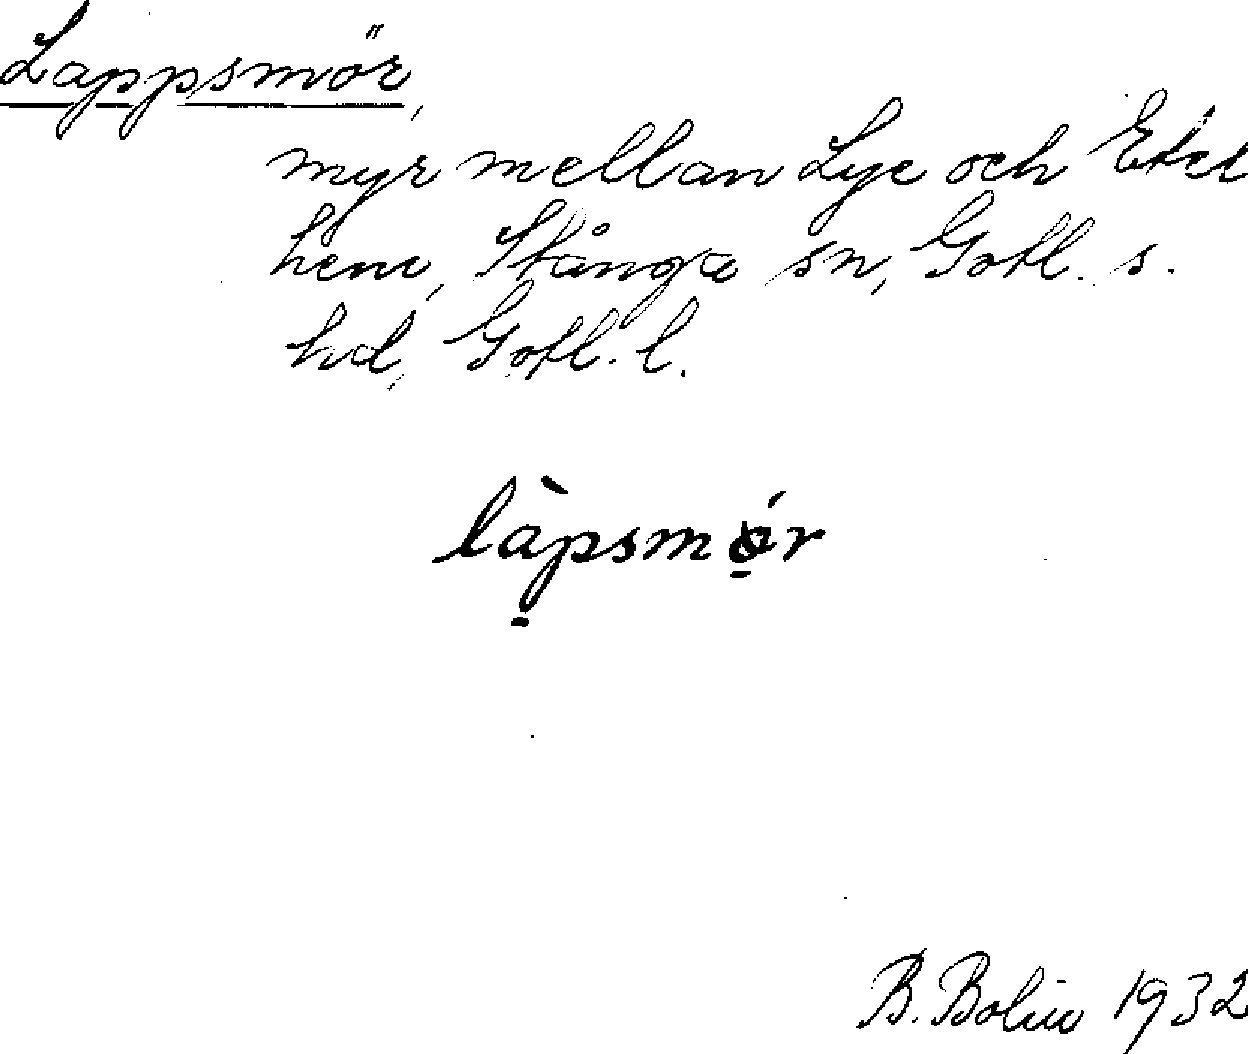 Lappsmör,
myr mellan Lye och Etel
hem, Stånga sn, Gotl. s.
hd, Gotl. l.
làpsmǫ́r
B. Bolin 1932